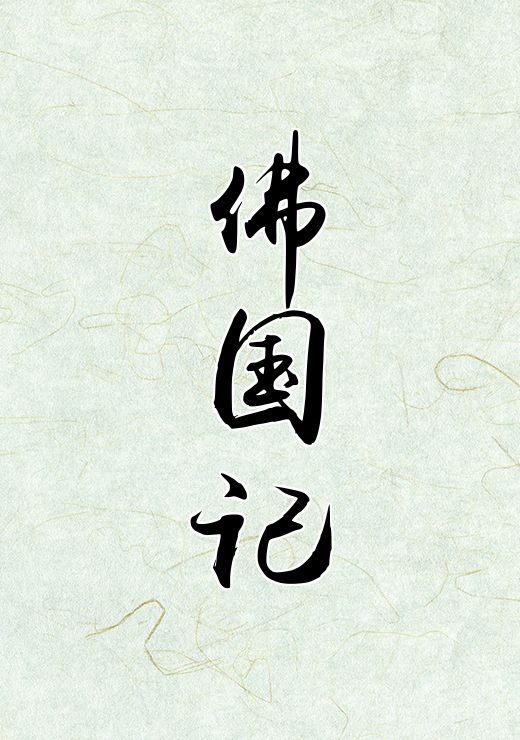 佛国记